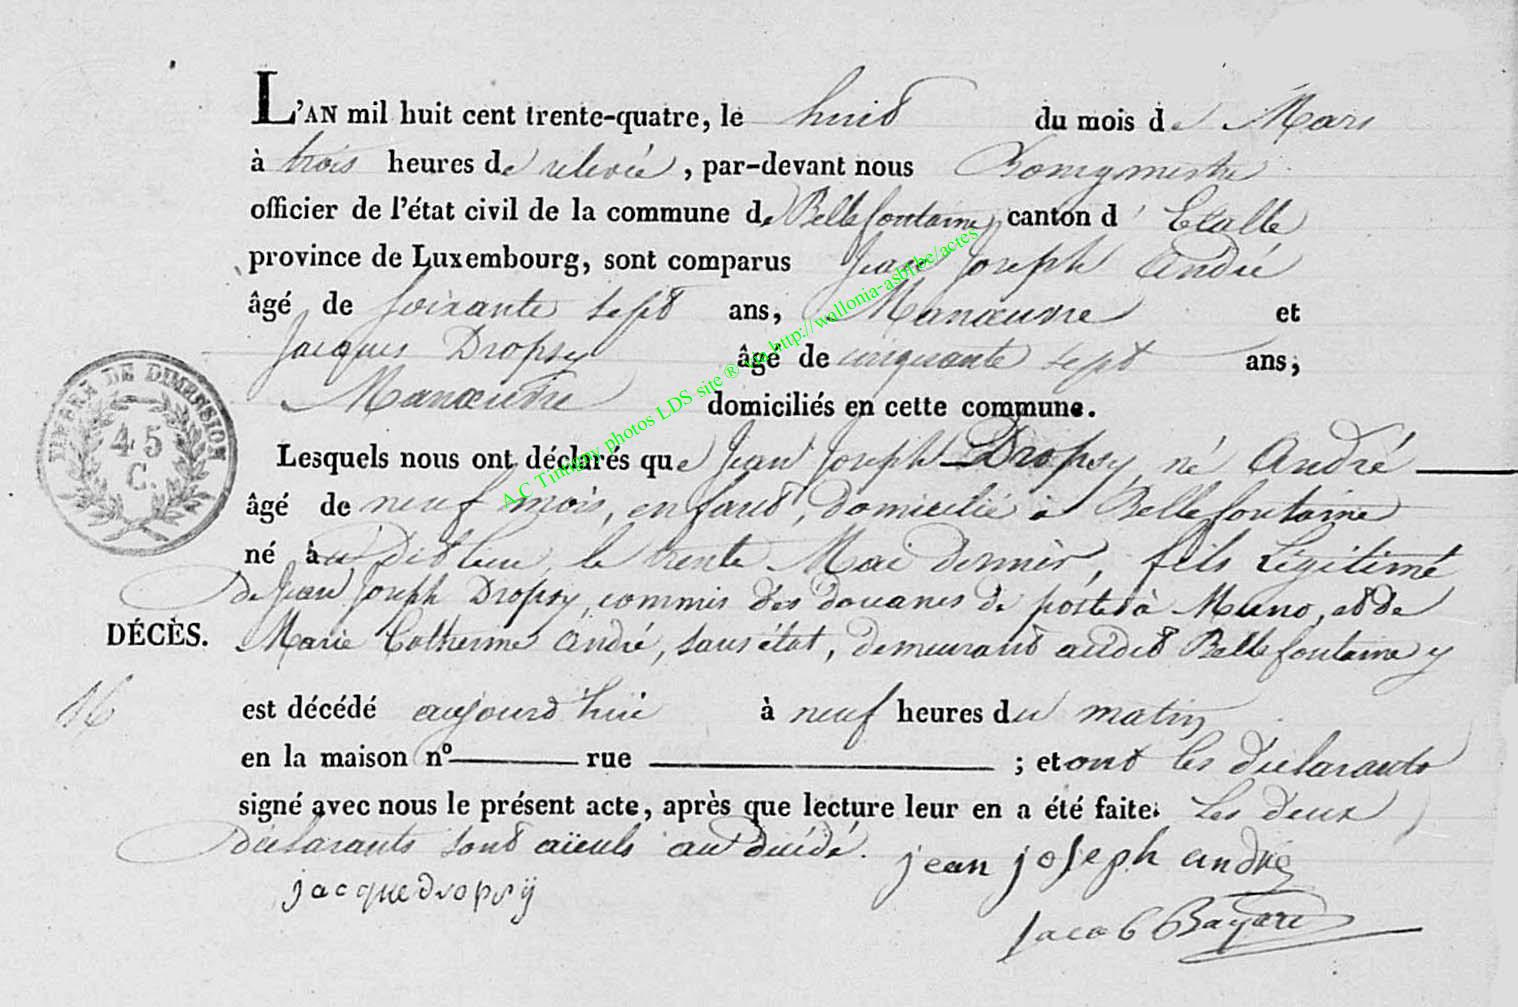 L'AN mil huit cent trente-quatre, le huit du mois de Mars
à trois heures de relevée, par-devant nous Bourgmestre
officier de l'état civil de la commune de Bellefontaine, canton d'Etalle
province de Luxembourg, sont comparus Jean Joseph André
âgé de soixante sept ans, Manœuvre et
Jacques Dropsy âgé de cinquante sept ans,
Manœuvre domiciliés en cette commune.
Lesquels nous ont déclarés que Jean Joseph Dropsy, né André
âgé de neuf mois, enfant, domicilié à Bellefontaine
né audit lieu, le trente Mai dernier, fils Légitimé
de Jean Joseph Dropsy, commis des douanes de poste à Muno, et de
DÉCÈS. Marie Catherine André, sans état, demeurant audit Bellefontaine y
16 est décédé aujourd'hui à neuf heures du matin
en la maison nº rue ; et ont les déclarants
signé avec nous le présent acte, après que lecture leur en a été faite. Les deux
déclarants sont aïeuls au décédé. jean joseph andré
jacque dropsij
Jacob Bayart
TIMBRE DE DIMENSION
45
C.
A.C Tintigny photos LDS site ® via http://wallonia-asbl.be/actes